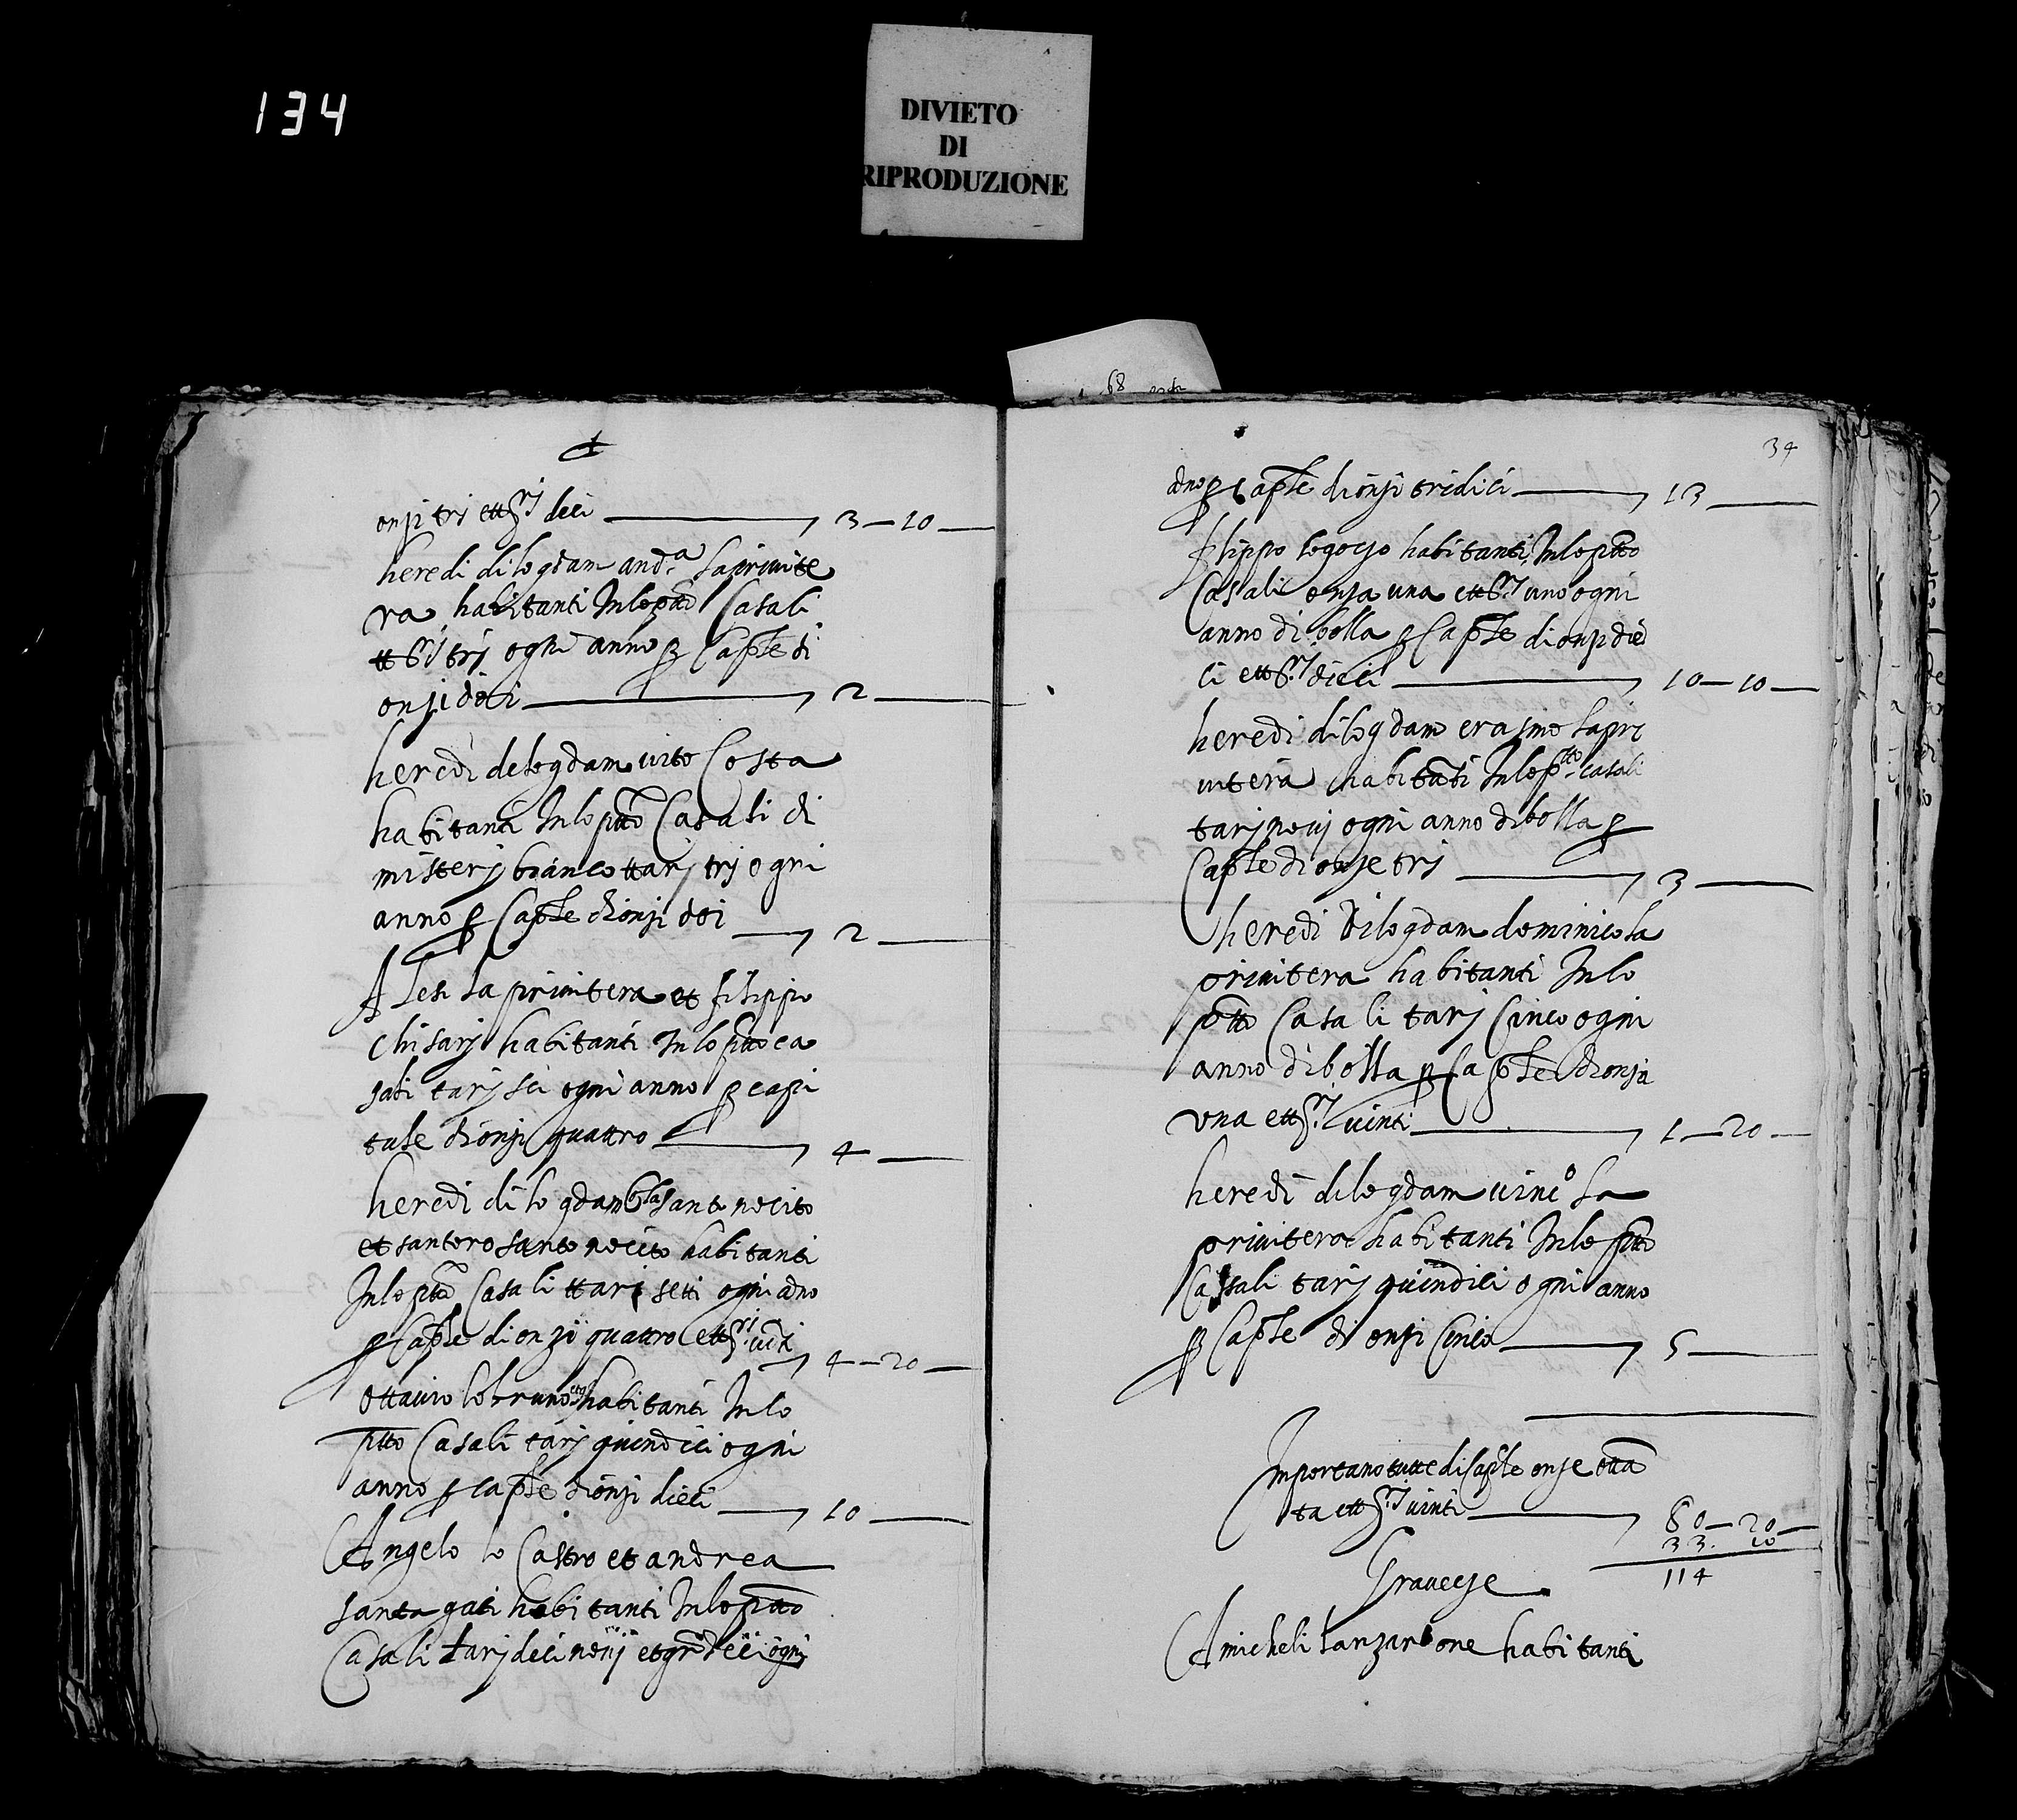 134
DIVIETO
DI
RIPRODUZIONE
68
onzi trj et tt.rj deci 3-10
heredi di lo qdam and.a la privite
ra habitanti In lo ptto Casali
tt.rj trj ogni anno p Caple di
onzi doi 2
heredi de lo qdam vito Costa
habitanti In lo ptto Casali di
misterj bianco ttarj trj ogni
anno p Caple di onzi doi 2
Alesi la privitera et filippo
Chisarj habitanti In lo ptto ca
sali tarj sei ogni anno p capi
tale di onzi quattro 4
heredi di lo qdam blasi santo nocito
et santoro santo nocito habitanti
In lo ptto Casali ttarj setti ogni ano
p Caple di onzi quattro et tt.rj vinti 4-20
ottavio lo bruno habitanti In lo
ptto Casali tarj quindici ogni
anno p caple di onzi dieci 10
Angelo lo Castro et andrea
santa gati habitanti In lo ptto
Casali tarj deci novj et gr deci ogni
34
ano p Caple di onzi tridici 13
filippo habitanti In lo ptto
Casali onza una et tt.rj uno ogni
anno di bolla p Caple di onzi die
ci et tt.rj dieci 10-10
heredi di lo qdam erasmo la pri
vitera habitanti In lo ptto casali
tarj novj ogni anno di bolla p
Caple di onze trj 3
heredi di lo qdam dominico la
privitera habitanti In lo
ptto Casali tarj Cinco ogni
anno di bolla p Caple di onza
una et tt.rj vinti 1-20
heredi di lo qdam vinc.o la
privitera habitanti In lo ptto
Casali tarj quindici ogni anno
p Caple di onzi Cinco 5
Importano tutte di Caple onze otta
ta et tt.rj vinti 80-20
33. 10
114
Amicheli lanzarone habitanti